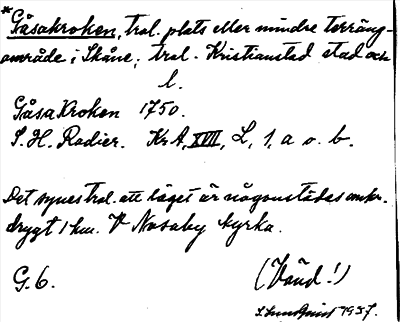 * Gåsakroken, trol. plats eller mindre terräng-
område i Skåne, trol. Kristianstad stad och
l.
GåsaKroken 1750.
S. H. Radier. Kr A, XVII, L, 1, a o. b.
Det synes trol. att läget är någonstädes omkr.
drygt 1 km. V Nosaby kyrka.
G. 6.
(Vänd!)
1937.